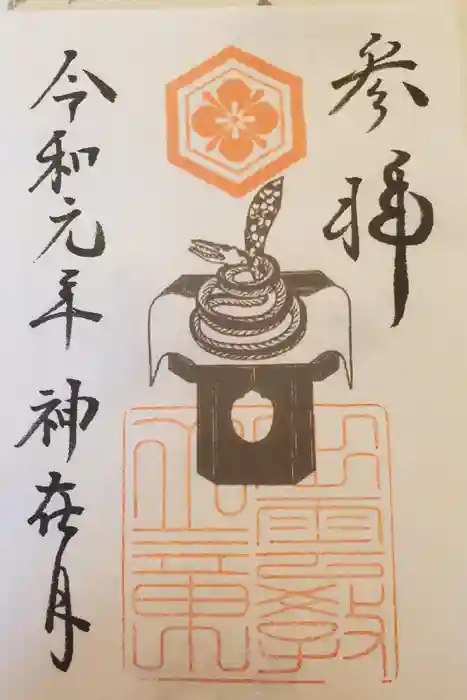 参拝
出雲教
令和元年 神在月